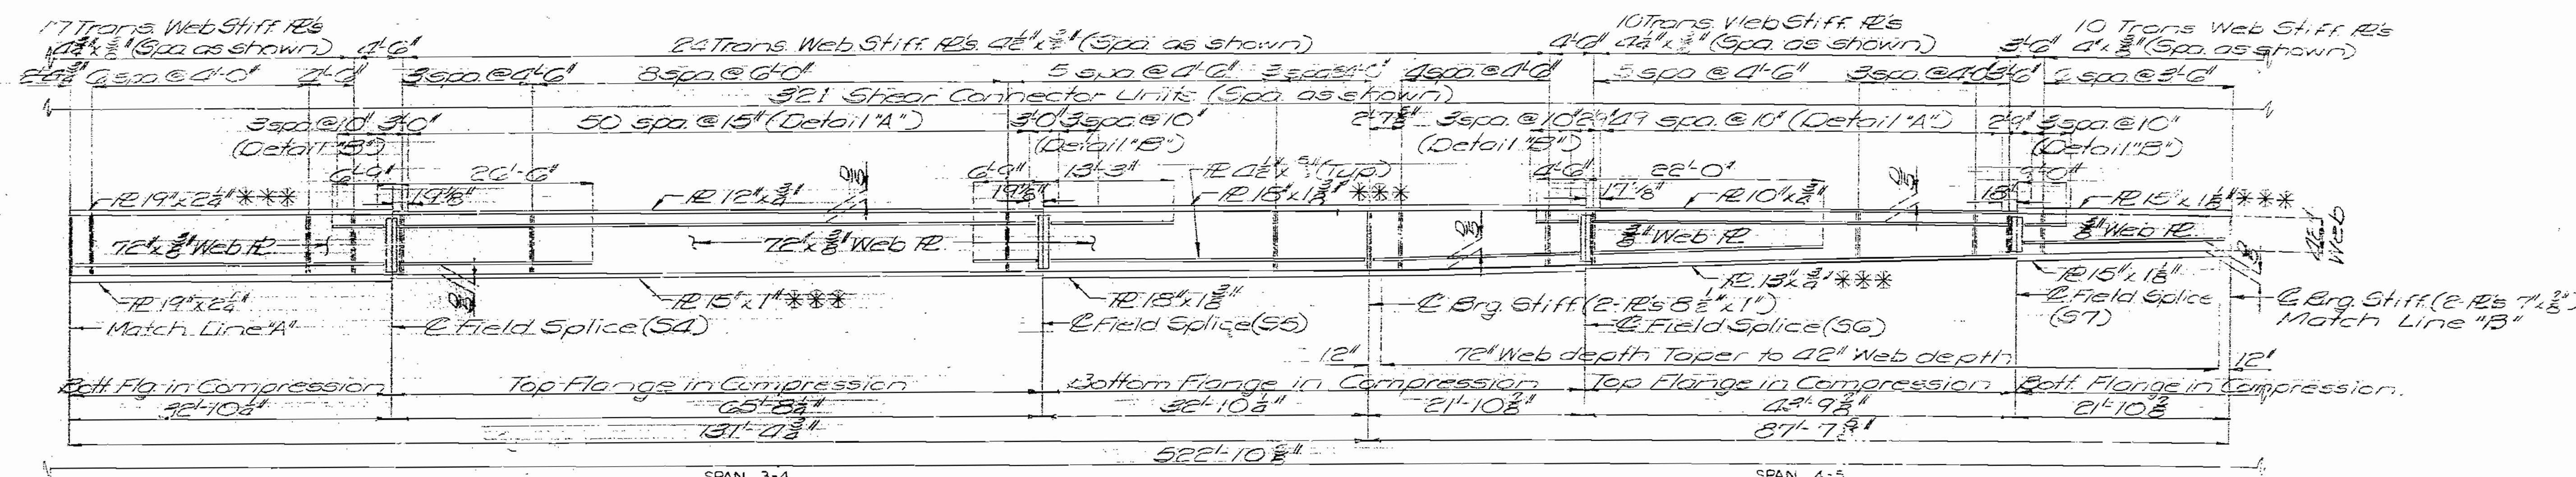 17 Trans. Web Stiff. PL's
(Spa. as shown) 4'-6"
24 Trans. Web. Stiff. PL's. 4½" x ⅜" (Spa. as shown)
4'-6"
10 Trans. Web Stiff. PL's
(Spa. as shown)
3'-6"
10 Trans Web Stiff. PL's
4" x ⅜" (Spa. as shown)
6 spa. @ 4'-0"
3 spa. @ 4'-6"
8 spa. @ 6'-0"
5 spa. @ 4'-6"
4 spa. @ 4'-6"
5 spa @ 4'-6"
3 spa. @ 4'-0"
3'-6"
spa. @ 3'-6"
321 Shear Connector Units (Spa. as shown)
3 spa. @ 10"
3'-0"
(Detail "B")
50 spa. @ 15" (Detail "A")
3'-0"
3 spa. @ 10"
(Detail "B")
3 spa. @ 10"
(Detail "B")
2'-9"
49 spa. @ 10" (Detail "A")
2'-9"
3 spa. @ 10"
(Detail "B")
6'-9"
26'-6"
6'-9"
13'-3"
(Typ.)
4'-6"
22'-0"
9'-0"
PL 19" x 2¼" ***
19⅛"
PL 12" x ¾"
19⅛"
PL 18" x 1⅜" ***
17⅛"
PL 10" x ¾"
18"
PL 15" x 1⅛" ***
72" x ⅜" Web PL
72" x ⅜" Web PL
⅜" Web PL
⅜" Web PL
Web
PL 19" x 2¼"
PL 15" x 1" ***
PL 18" x 1⅜"
PL 13" x ¾" ***
PL 15" x 1⅛"
Match Line "A"
℄ Field Splice (S4)
℄ Field Splice (S5)
℄ Brg. Stiff. (2-PL's 8½" x 1")
℄ Field Splice (S6)
℄ Field Splice
(S7)
℄ Brg. Stiff. (2-PL's 7" x
Match Line "B"
12"
72" Web depth Taper to 42" Web depth
12"
Bott. Flg in Compression
Top Flange in Compression
Bottom Flange in Compression
Top Flange in Compression
Bott. Flange in Compression.
32'-10¼"
65'-8¼"
32'-10¼"
21'-10⅞"
21'-10⅞"
131'-4¾"
522'-10⅝"
SPAN 3-4
SPAN 4-5